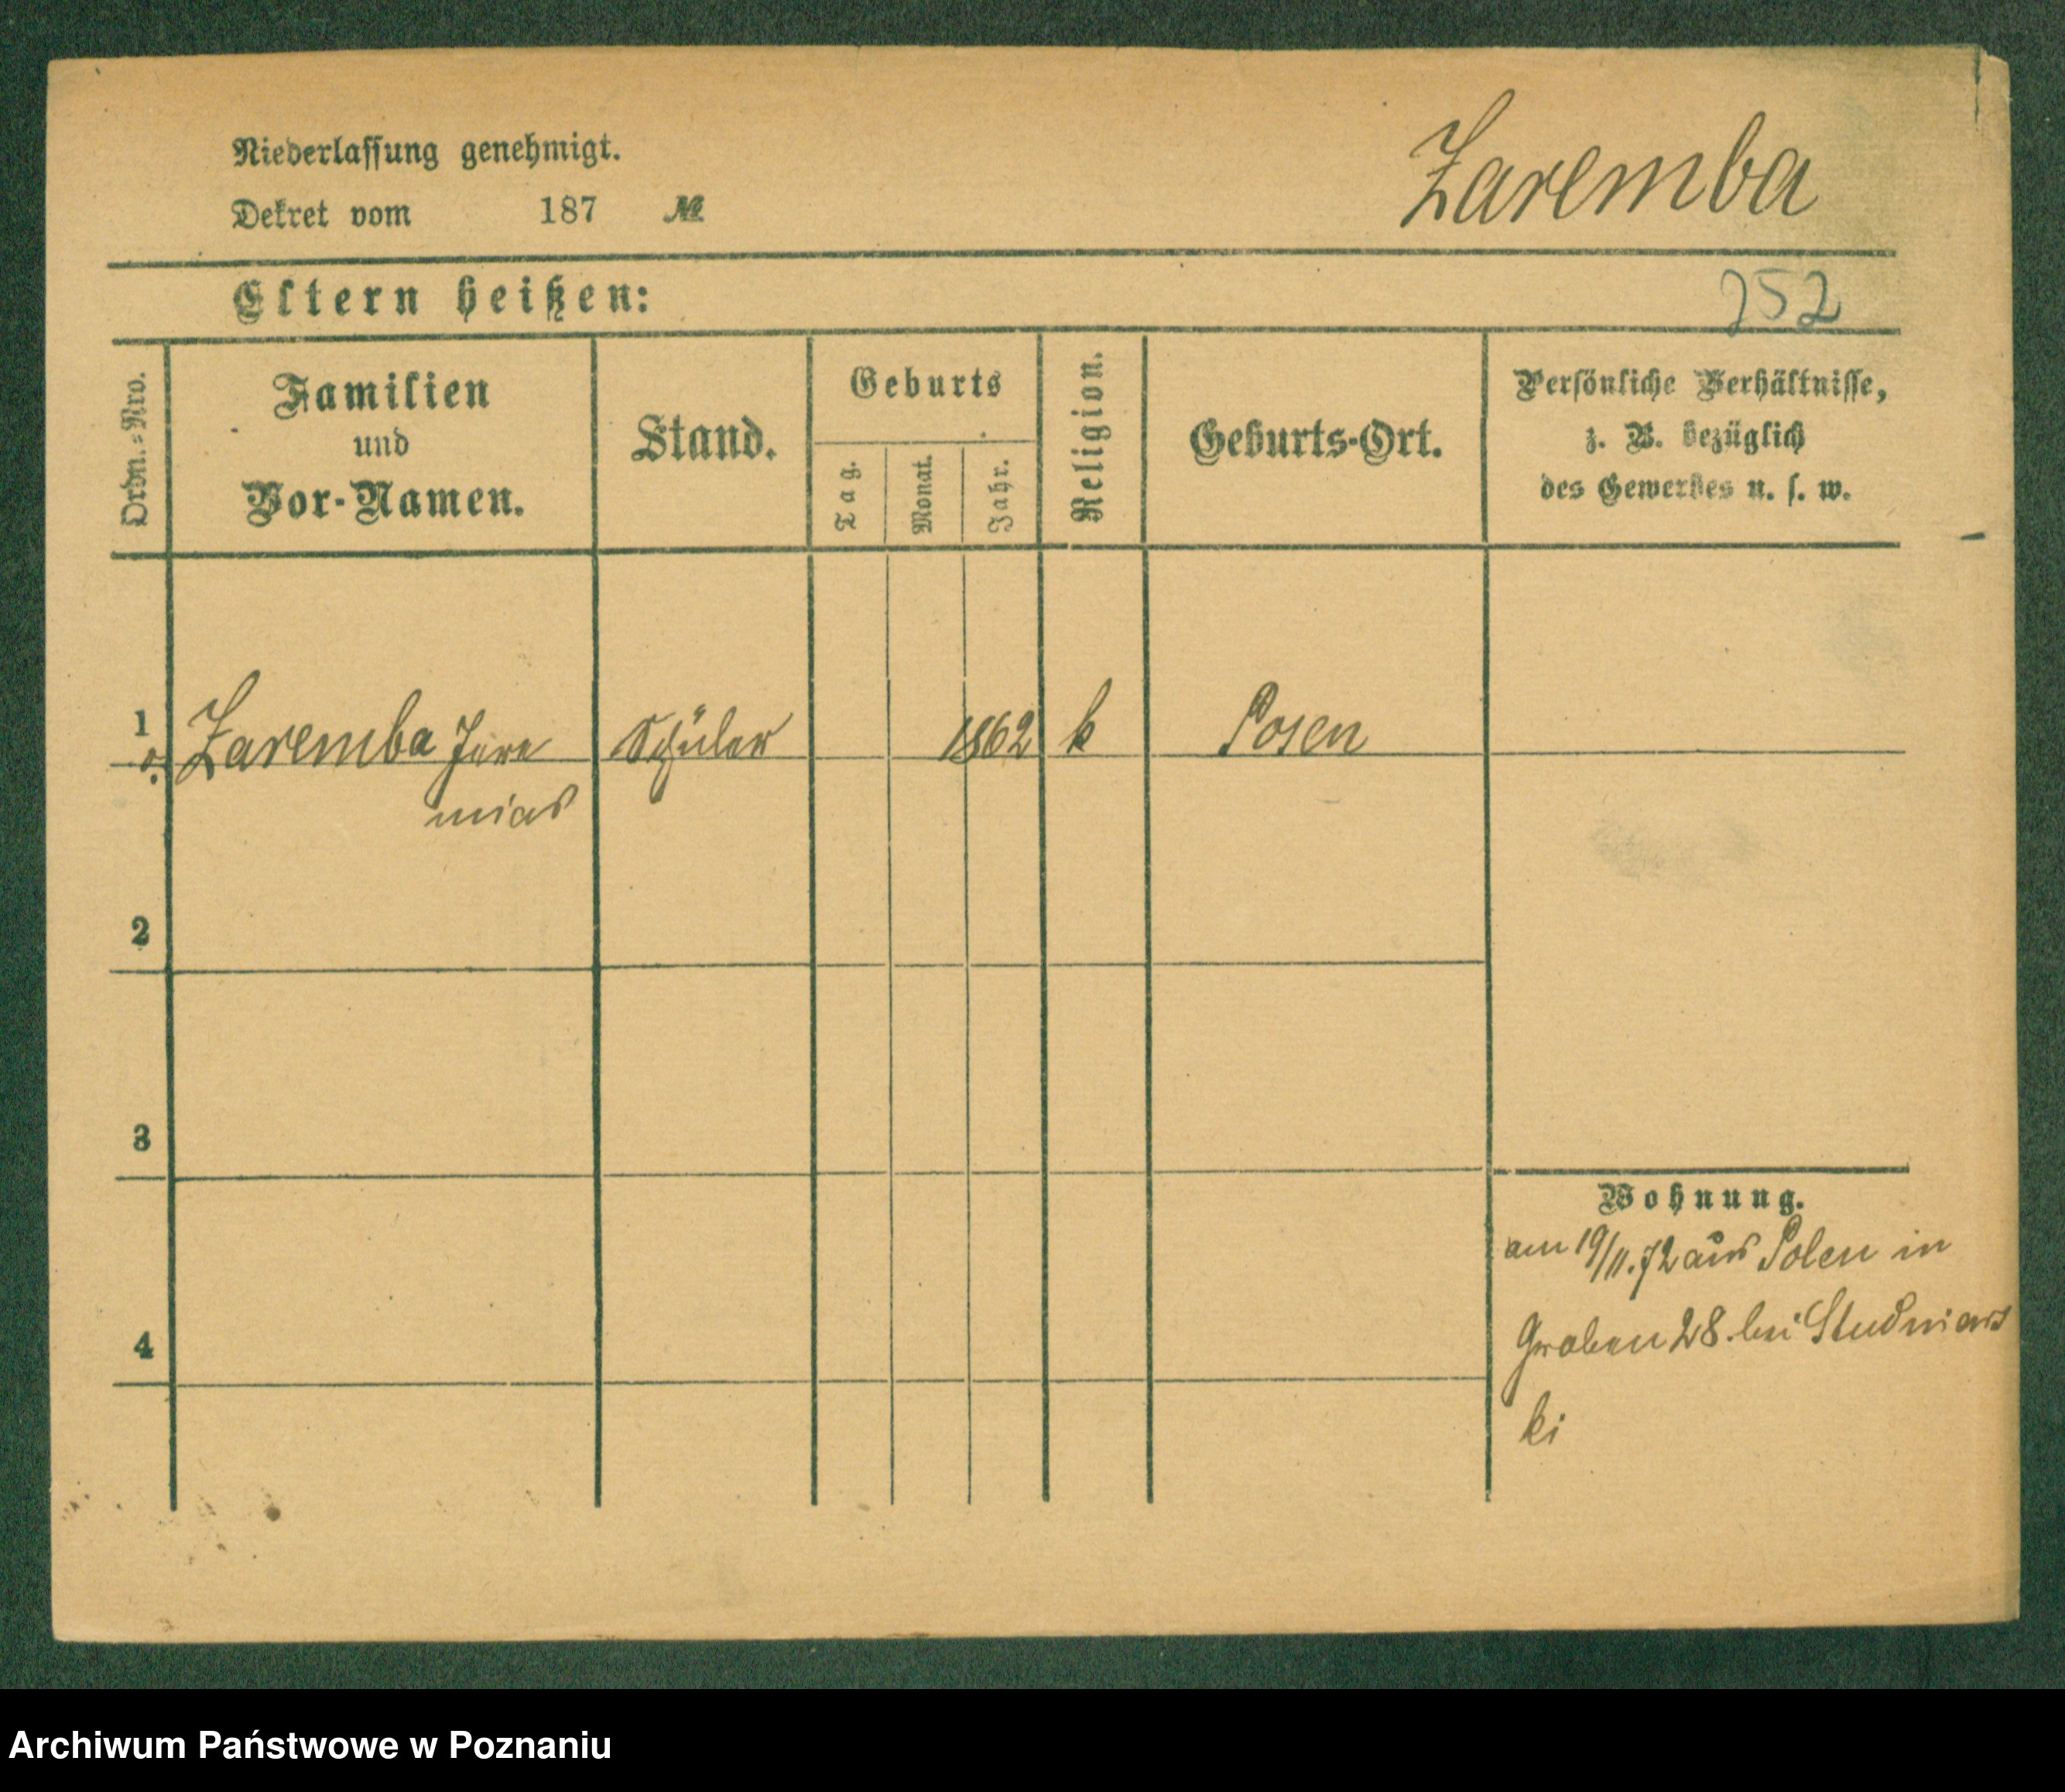 Niederlassung genehmigt.
Dekret vom 187 №
Zaremba
Eltern heißen:
252
Ordn.=Nro.
Familien
und
Vor-Namen.
Stand.
Geburts
Tag.
Monat.
Jahr.
Religion.
Geburts-Ort.
Persönliche Verhältnisse,
z. B. bezüglich
des Gewerbes u. s. w.
1 Zaremba Jere Schüler 1862 k Posen
mias
2
3
4
Wohnung.
am 19/11.72 aus Polen in
Graben 28 bei Studniars
ki
Archiwum Państwowe w Poznaniu